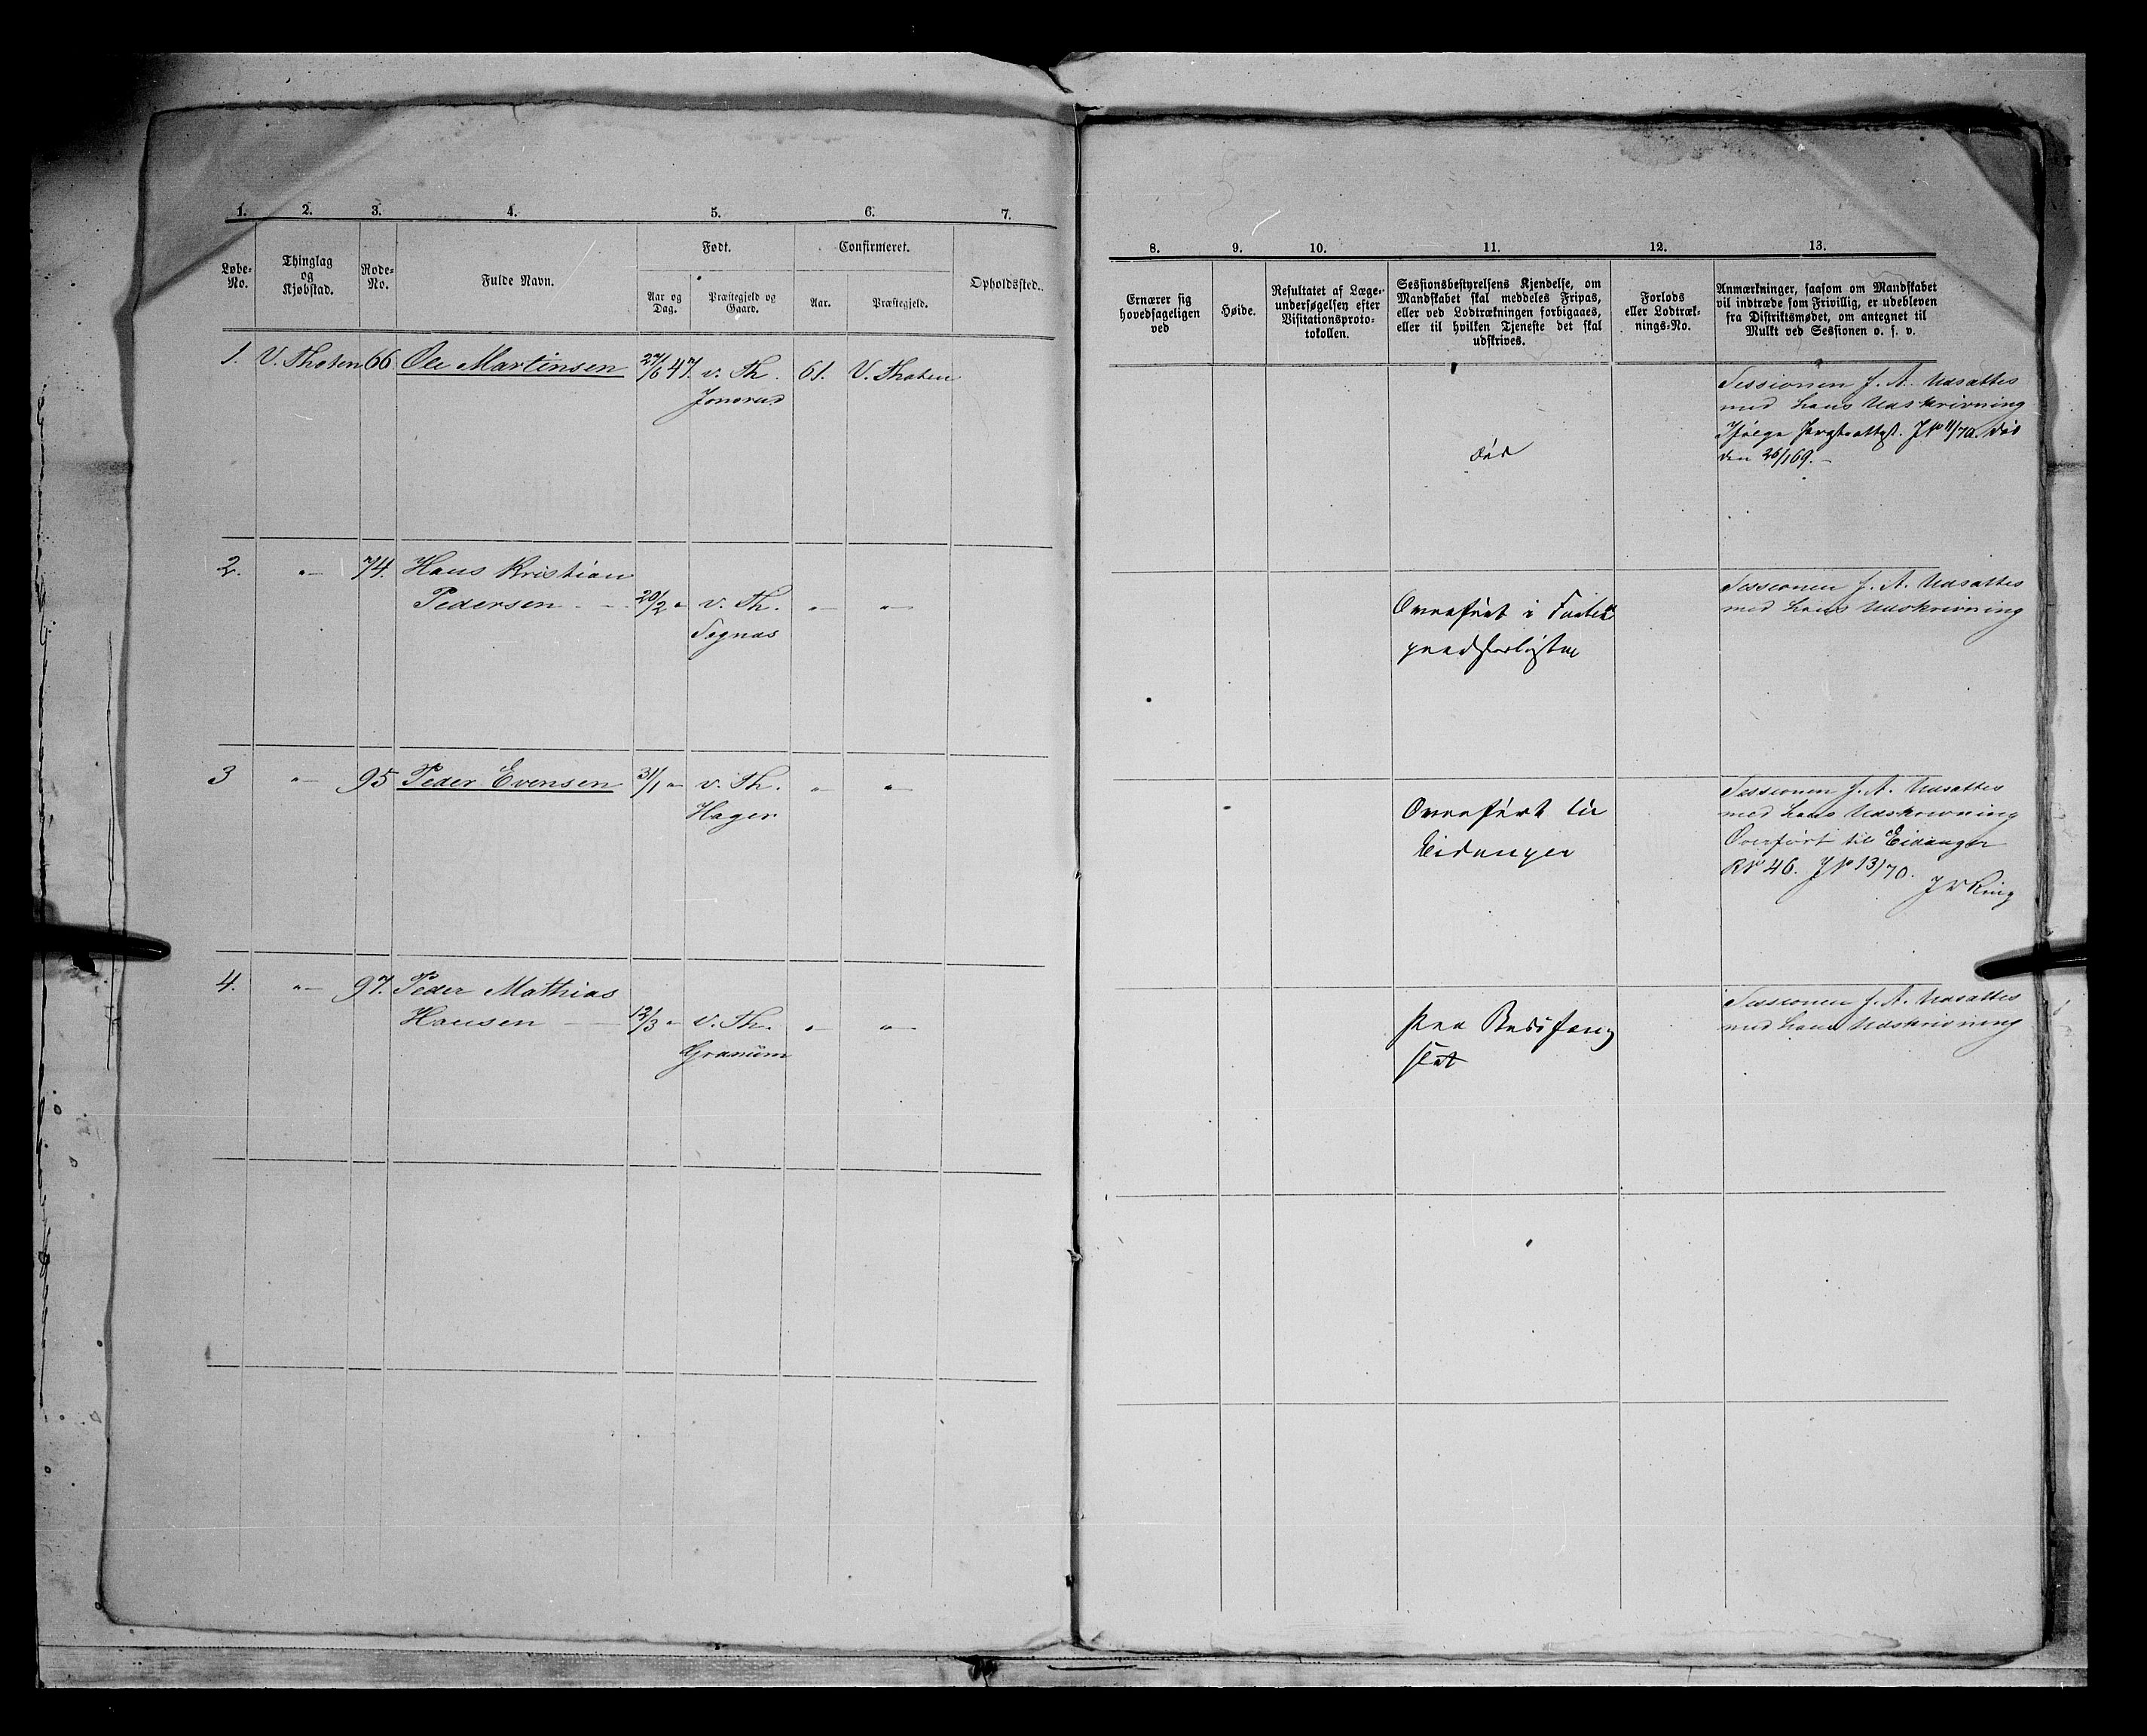 1. 2. 3. 4. 5. 6. 7.
Løbe-No. Thinglag og Kjøbstad. Rode-No. Fulde Navn. Født. Confirmeret. Opholdssted.
Aar og Dag. Præstegjeld og Gaard. Aar. Præstegjeld.
1. V. Thoten 66 Ole Martinsen 27/6 47. v. Th. 61. V. Thoten
Jonsrud
2. "— 74. Hans Kristian
Pedersen — 20/2 " v. Th. " "—
Sognas
3 "— 95 Peder Evensen 31/1 " v. Th. " "—
Hager
4. "— 97. Peder Mathias
Hansen — 12/3 " v. Th. " "—
Granum
8. 9. 10. 11. 12. 13.
Ernærer sig
hovedsageligen
ved
Høide.
Resultatet af Læge-
undersøgelsen efter
Visitationsproto-
tokollen.
Sessionsbestyrelsens Kjendelse, om
Mandskabet skal meddeles Fripas,
eller ved Lodtrækningen forbigaaes,
eller til hvilken Tjeneste det skal
udskrives.
Forlods
eller Lodtræk-
nings-No.
Anmærkninger, saasom om Mandskabet
vil indtræde som Frivillig, er udebleven
fra Distriktsmødet, om antegnet til
Mulkt ved Sessionen o. s. v.
død
Sessionen f. A. Udsattes
med hans Udskrivning
Ifølge Præsteattest. J№ 11/70. død
den 26/1 69.—
Overført i
Sessionen f. A. Udsattes
med hans Udskrivning
Overført til
Eidanger
Sessionen f. A. Udsattes
med hans Udskrivning
Overført til Eidanger
R№ 46. J№ 13/70.
Ring
Sessionen f. A. Udsattes
med hans Udskrivning